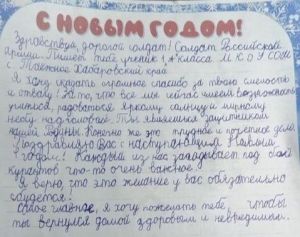 С НОВЫМ ГОДОМ!
Здравствуй, дорогой солдат! Солдат Российской
армии. Пишет тебе ученик 1 класса М К О У СОШ
с Хабаровский край
Я хочу сказать огромное спасибо за твою смелость
и отвагу. За то, что все мы сейчас имеем возможность
учиться, радоваться яркому солнцу и мирному
небу над головой. Ты являешься защитником
нашей Родины. Конечно же это трудное и почетное дело.
Поздравляю Вас с наступающим Новым
годом! Каждый из нас загадывает под бой
курантов что-то очень важное.
Я верю, что это желание у вас обязательно
сбудется!
Самое главное, я хочу пожелать тебе, чтобы
ты вернулся домой здоровым и невредимым.